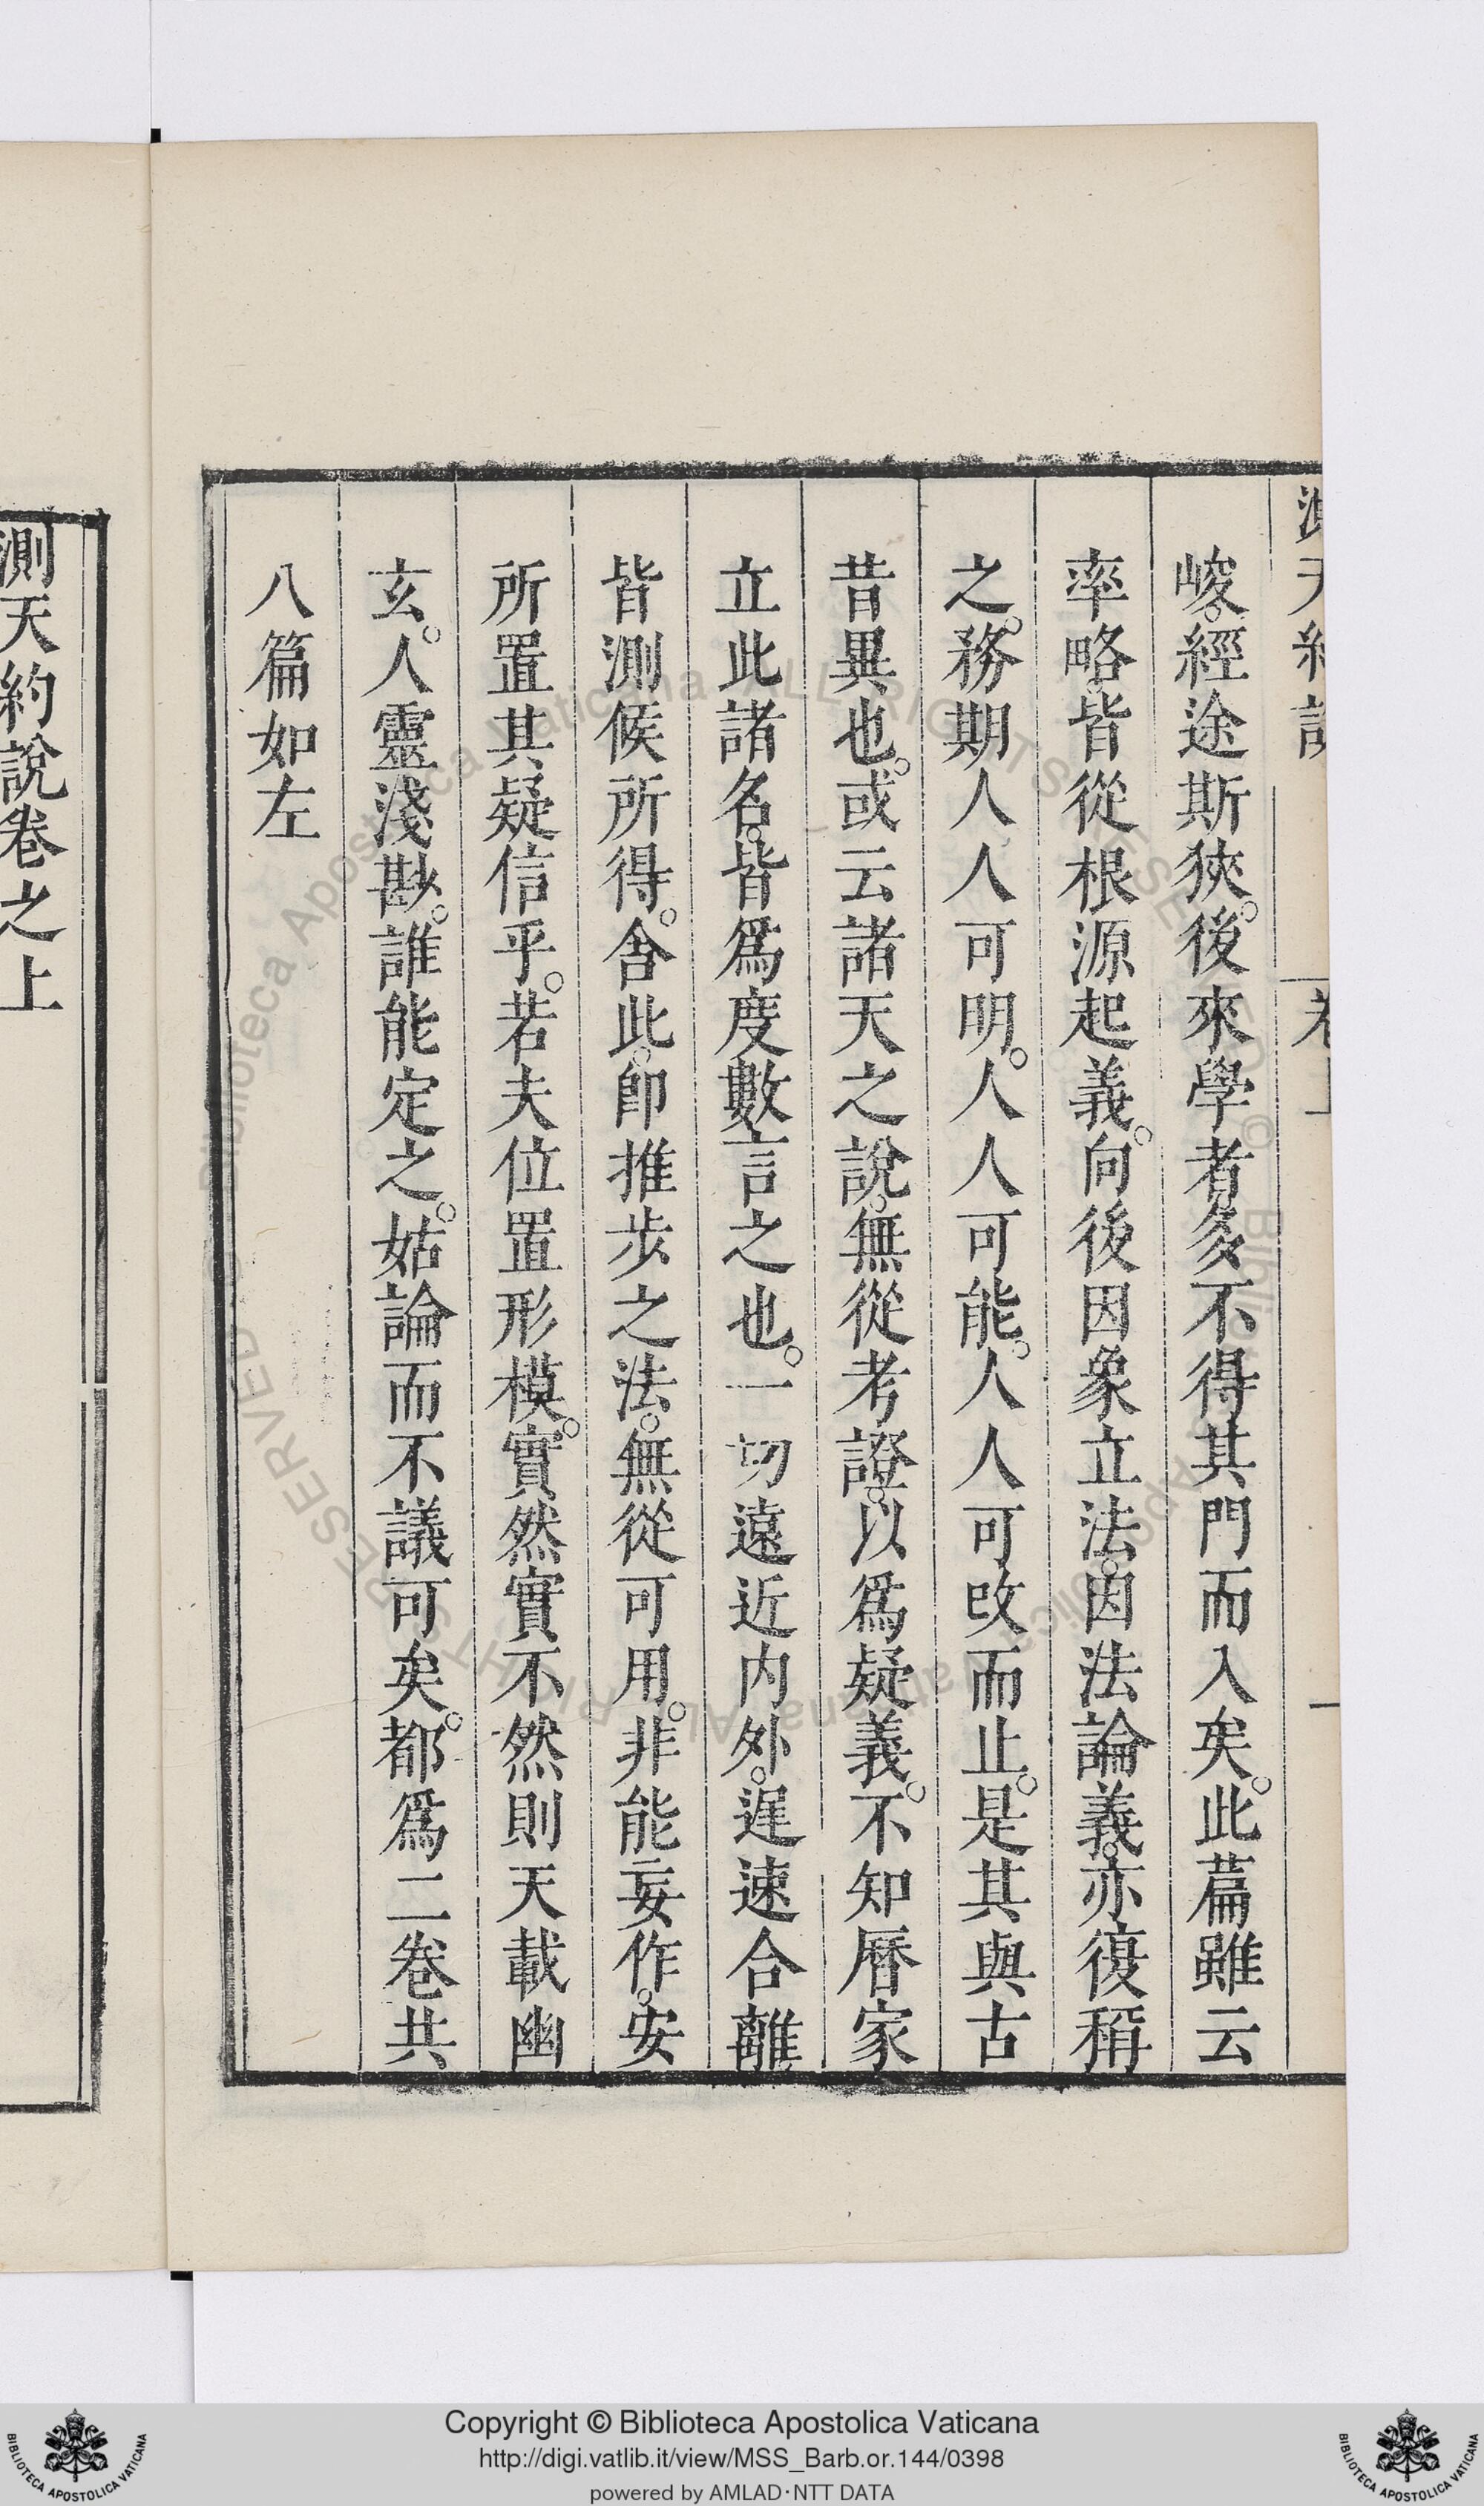 測天約說
卷上
一
峻。經途斯狹。後來學者。多不得其門而入矣。此篇雖云
率略。皆從根源起義。向後因象立法。因法論義。亦復稱
之。務期人人可明。人人可能。人人可改而止。是其與古
昔異也。或云諸天之說。無從考證。以為疑義。不知曆家
立此諸名。皆爲度數言之也。一切遠近內外。遲速合離
皆測候所得。舍此。卽推步之法。無從可用。非能妄作。安
所置其疑信乎。若夫位置形模。實然實不然則天載幽
玄。人靈淺尠。誰能定之。姑論而不議可矣。都爲二卷共
八篇如左
測天約說卷之上
Copyright © Biblioteca Apostolica Vaticana
http://digi.vatlib.it/view/MSS_Barb.or.144/0398
powered by AMLAD·NTT DATA
BIBLIOTECA APOSTOLICA VATICANA
BIBLIOTECA APOSTOLICA VATICANA